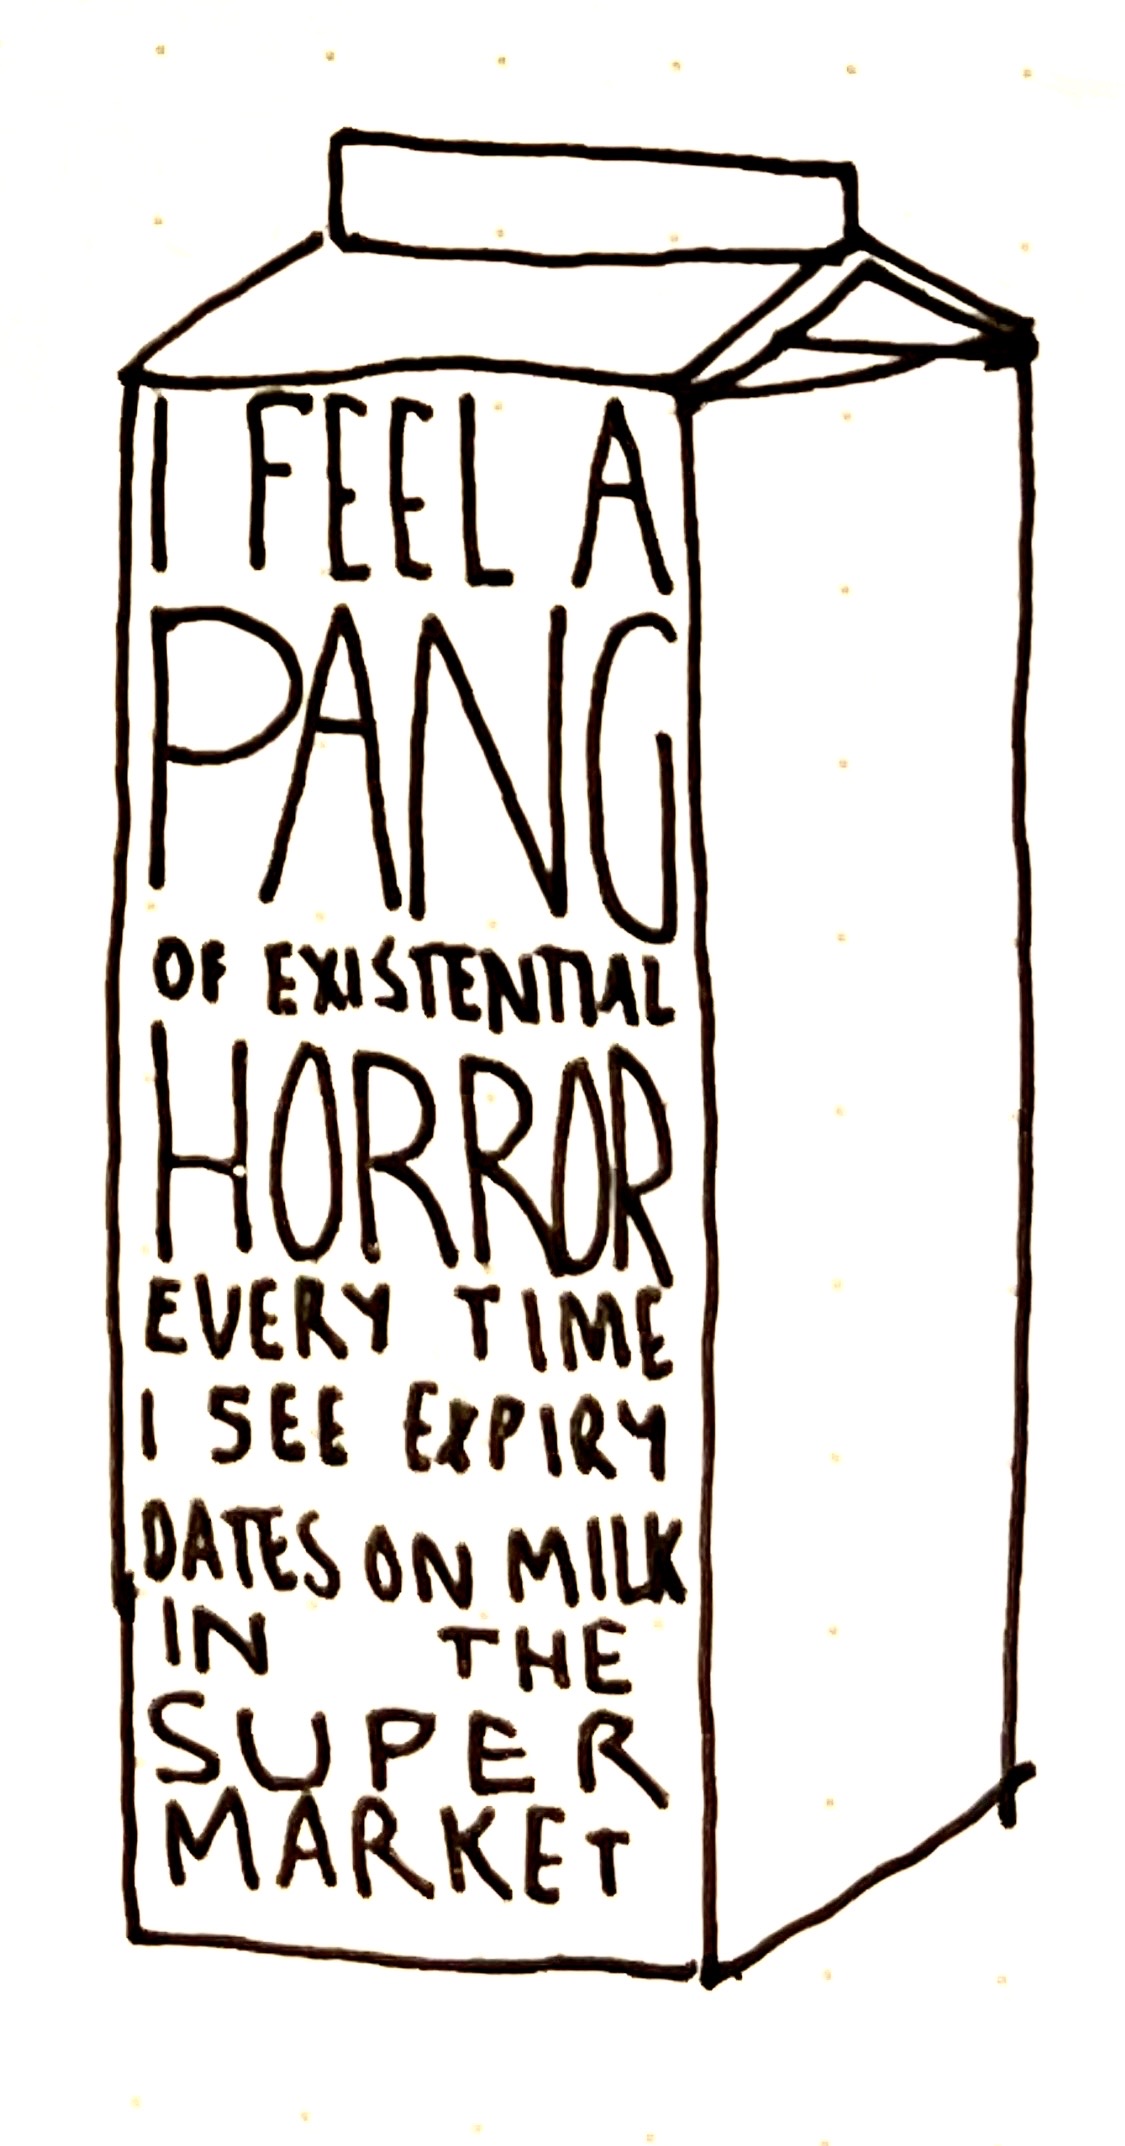 I FEEL A
PANG
OF EXISTENTIAL
HORROR
EVERY TIME
I SEE EXPIRY
DATES ON MILK
IN THE
SUPER
MARKET